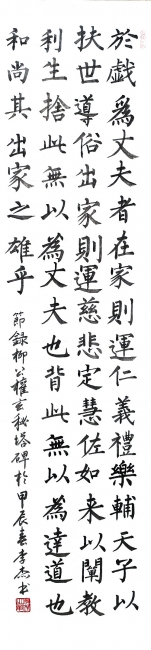 於戲為丈夫者在家則運仁義禮樂輔天子以
扶世導俗出家則運慈悲定慧佐如来以闡教
利生捨此無以為丈夫也背此無以為達道也
和尚其出家之雄乎
節録柳公權玄秘塔碑於甲辰春李杰書